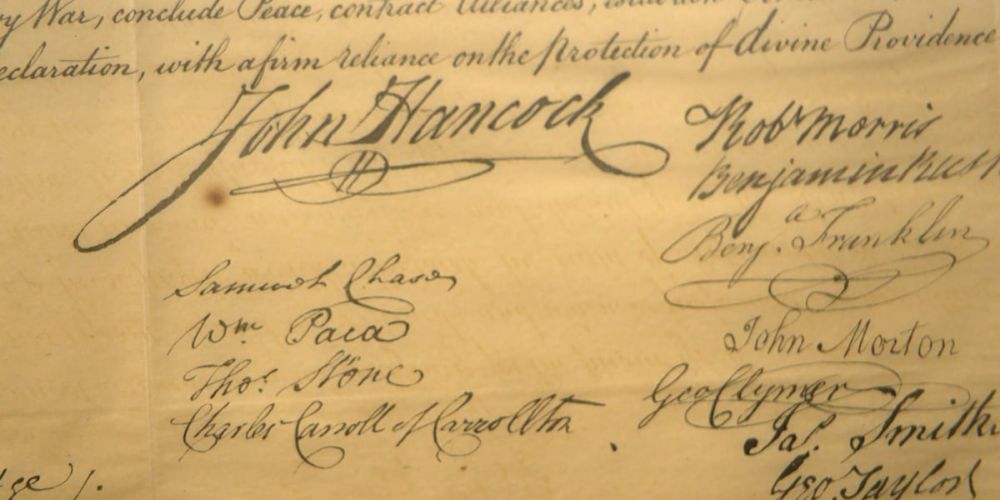 War, conclude Peace, contract Alliances,
eclaration, with a firm reliance on the protection of divine Providence
John Hancock
Robt Morris
Benjamin Rush
Benja. Franklin
Samuel Chase
Wm Paca
Thos. Stone
Charles Carroll of Carrollton
John Morton
Geo Clymer
Jas. Smith
Geo Taylor